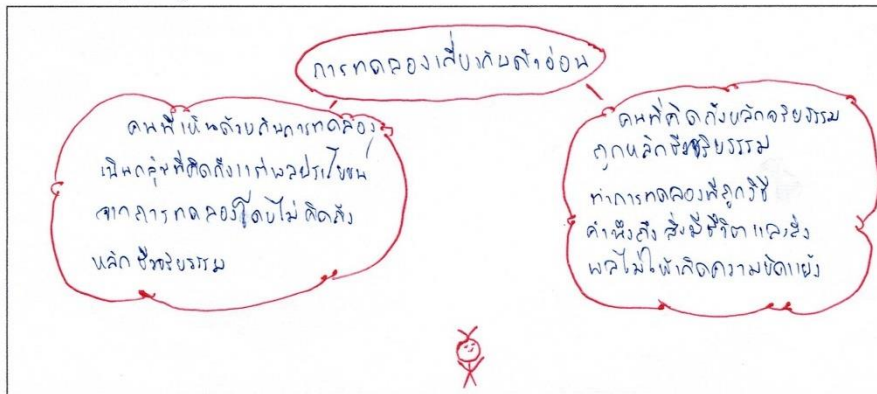 การทดลองเกี่ยวกับตัวอ่อน
คนที่เห็นด้วยกับการทดลอง
เป็นกลุ่มที่คิดถึงแต่ผลประโยชน์
จากการทดลองโดยไม่คิดถึง
หลักชีวจริยธรรม
คนที่คิดถึงหลักจริยธรรม
ถูกหลักชีวจริยธรรม
ทำการทดลองที่ถูกวิธี
คำนึงถึงสิ่งมีชีวิตและสิ่ง
ผลไม่ให้เกิดความขัดแย้ง